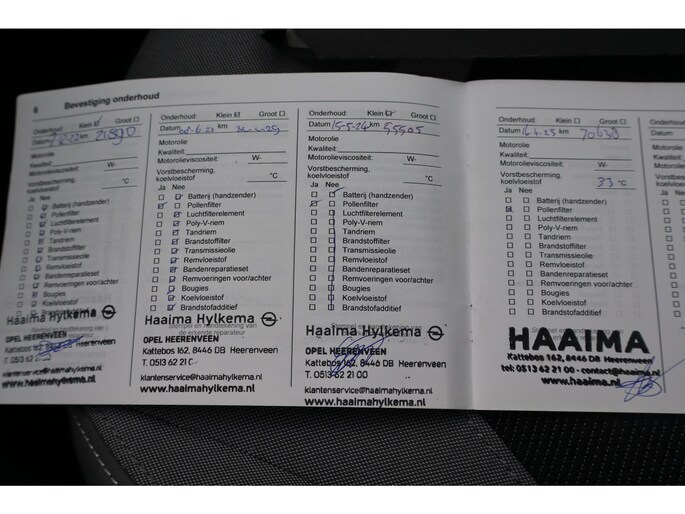 6 Bevestiging onderhoud
Onderhoud: Klein Groot
Datum km 21890
Motorolie
Kwaliteit:
Motorolieviscositeit: W-
Vorstbescherming, koelvloeistof °C
Ja Nee
Batterij (handzender)
Pollenfilter
Luchtfilterelement
Poly-V-riem
Tandriem
Brandstoffilter
Transmissieolie
Remvloeistof
Bandenreparatieset
Remvoeringen voor/achter
Bougies
Koelvloeistof
Brandstofadditief
Haaima Hylkema
OPEL HEERENVEEN
Kattebos 162, 8446 DB Heerenveen
T. 0513 62 21
klantenservice@haaimahylkema.nl
www.haaimahylkema.nl
Onderhoud: Klein Groot
Datum km
Motorolie
Kwaliteit:
Motorolieviscositeit: W-
Vorstbescherming,
koelvloeistof °C
Ja Nee
Batterij (handzender)
Pollenfilter
Luchtfilterelement
Poly-V-riem
Tandriem
Brandstoffilter
Transmissieolie
Remvloeistof
Bandenreparatieset
Remvoeringen voor/achter
Bougies
Koelvloeistof
Brandstofadditief
Stempel en handtekening van
de erkende reparateur
Haaima Hylkema
OPEL HEERENVEEN
Kattebos 162, 8446 DB Heerenveen
T. 0513 62 21
klantenservice@haaimahylkema.nl
www.haaimahylkema.nl
Onderhoud: Klein Groot
Datum 15-5-24 km 55505
Motorolie
Kwaliteit:
Motorolieviscositeit: W-
Vorstbescherming,
koelvloeistof °C
Ja Nee
Batterij (handzender)
Pollenfilter
Luchtfilterelement
Poly-V-riem
Tandriem
Brandstoffilter
Transmissieolie
Remvloeistof
Bandenreparatieset
Remvoeringen voor/achter
Bougies
Koelvloeistof
Brandstofadditief
Haaima Hylkema
OPEL HEERENVEEN
Kattebos 162, 8446 DB Heerenveen
T. 0513 62 21
klantenservice@haaimahylkema.nl
www.haaimahylkema.nl
Onderhoud: Klein Groot
Datum km
Motorolie
Kwaliteit:
Motorolieviscositeit: W-
Vorstbescherming,
koelvloeistof 33 °C
Ja Nee
Batterij (handzender)
Pollenfilter
Luchtfilterelement
Poly-V-riem
Tandriem
Brandstoffilter
Transmissieolie
Remvloeistof
Bandenreparatieset
Remvoeringen voor/achter
Bougies
Koelvloeistof
Brandstofadditief
HAAIMA
Kattebos 162, 8446 DB Heerenveen
tel: 0513 62 21 00 - contact@haaima.nl
www.haaima.nl